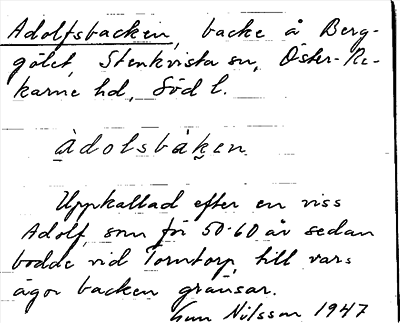 Adolfsbacken, backe å Berg-
gölet, Stenkvista sn, Öster-Re-
karne hd, Södl.
àdolsbàken
Uppkallad efter en viss
Adolf, som för 50-60 år sedan
bodde vid Torntorp, till vars
ägor backen gränsar.
Gun Nilsson 1947